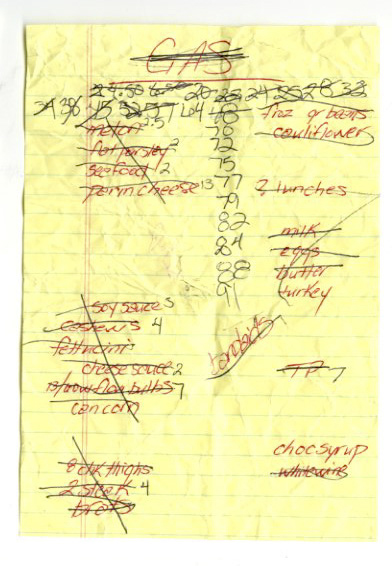 GAS
24.50 20 25 24 35 28 32
34 36 15 32 37 64 40
melon 2.5
flat parsley 2
seafood 2
parm cheese 13
70
72
75
77
79
82
84
88
91
frz gr beans
cauliflower
2 lunches
milk
eggs
butter
turkey
soy sauce 3
cashews 4
fettucini
cheese sauce 2
7
can corn
bandaids 7
TP 7
8 chk thighs
2 steak 4
brats
choc syrup
white wine